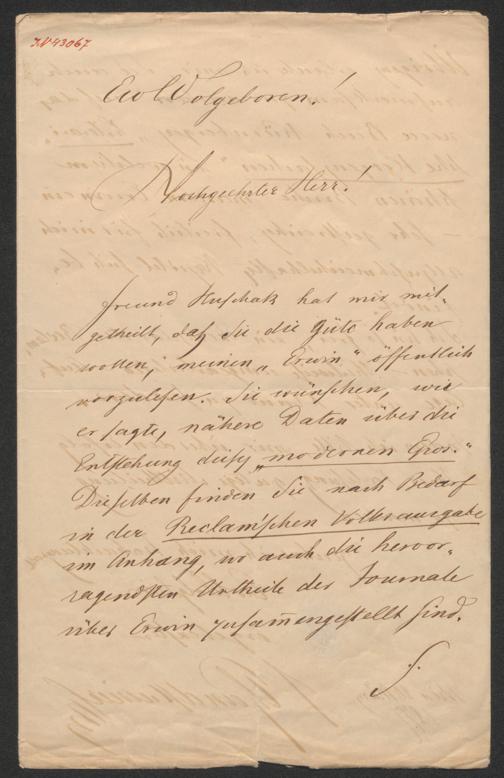 IN 43067
Ew Wolgeboren!
Hochgeehrter Herr!
Freund Huschak hat mir mit-
getheilt, daß Sie die Güte haben
wollen, meinen „Erwin“ öffentlich
vorzulesen. Sie wünschen, wie
er sagte, nähere Daten über die
Entstehung dieses „modernen Epos.“
Dieselben finden Sie nach Bedarf
in der Reclam'schen Volksausgabe
im Anhang, wo auch die hervor-
ragendsten Urtheile der Journale
über Erwin zusam̅engestellt sind.